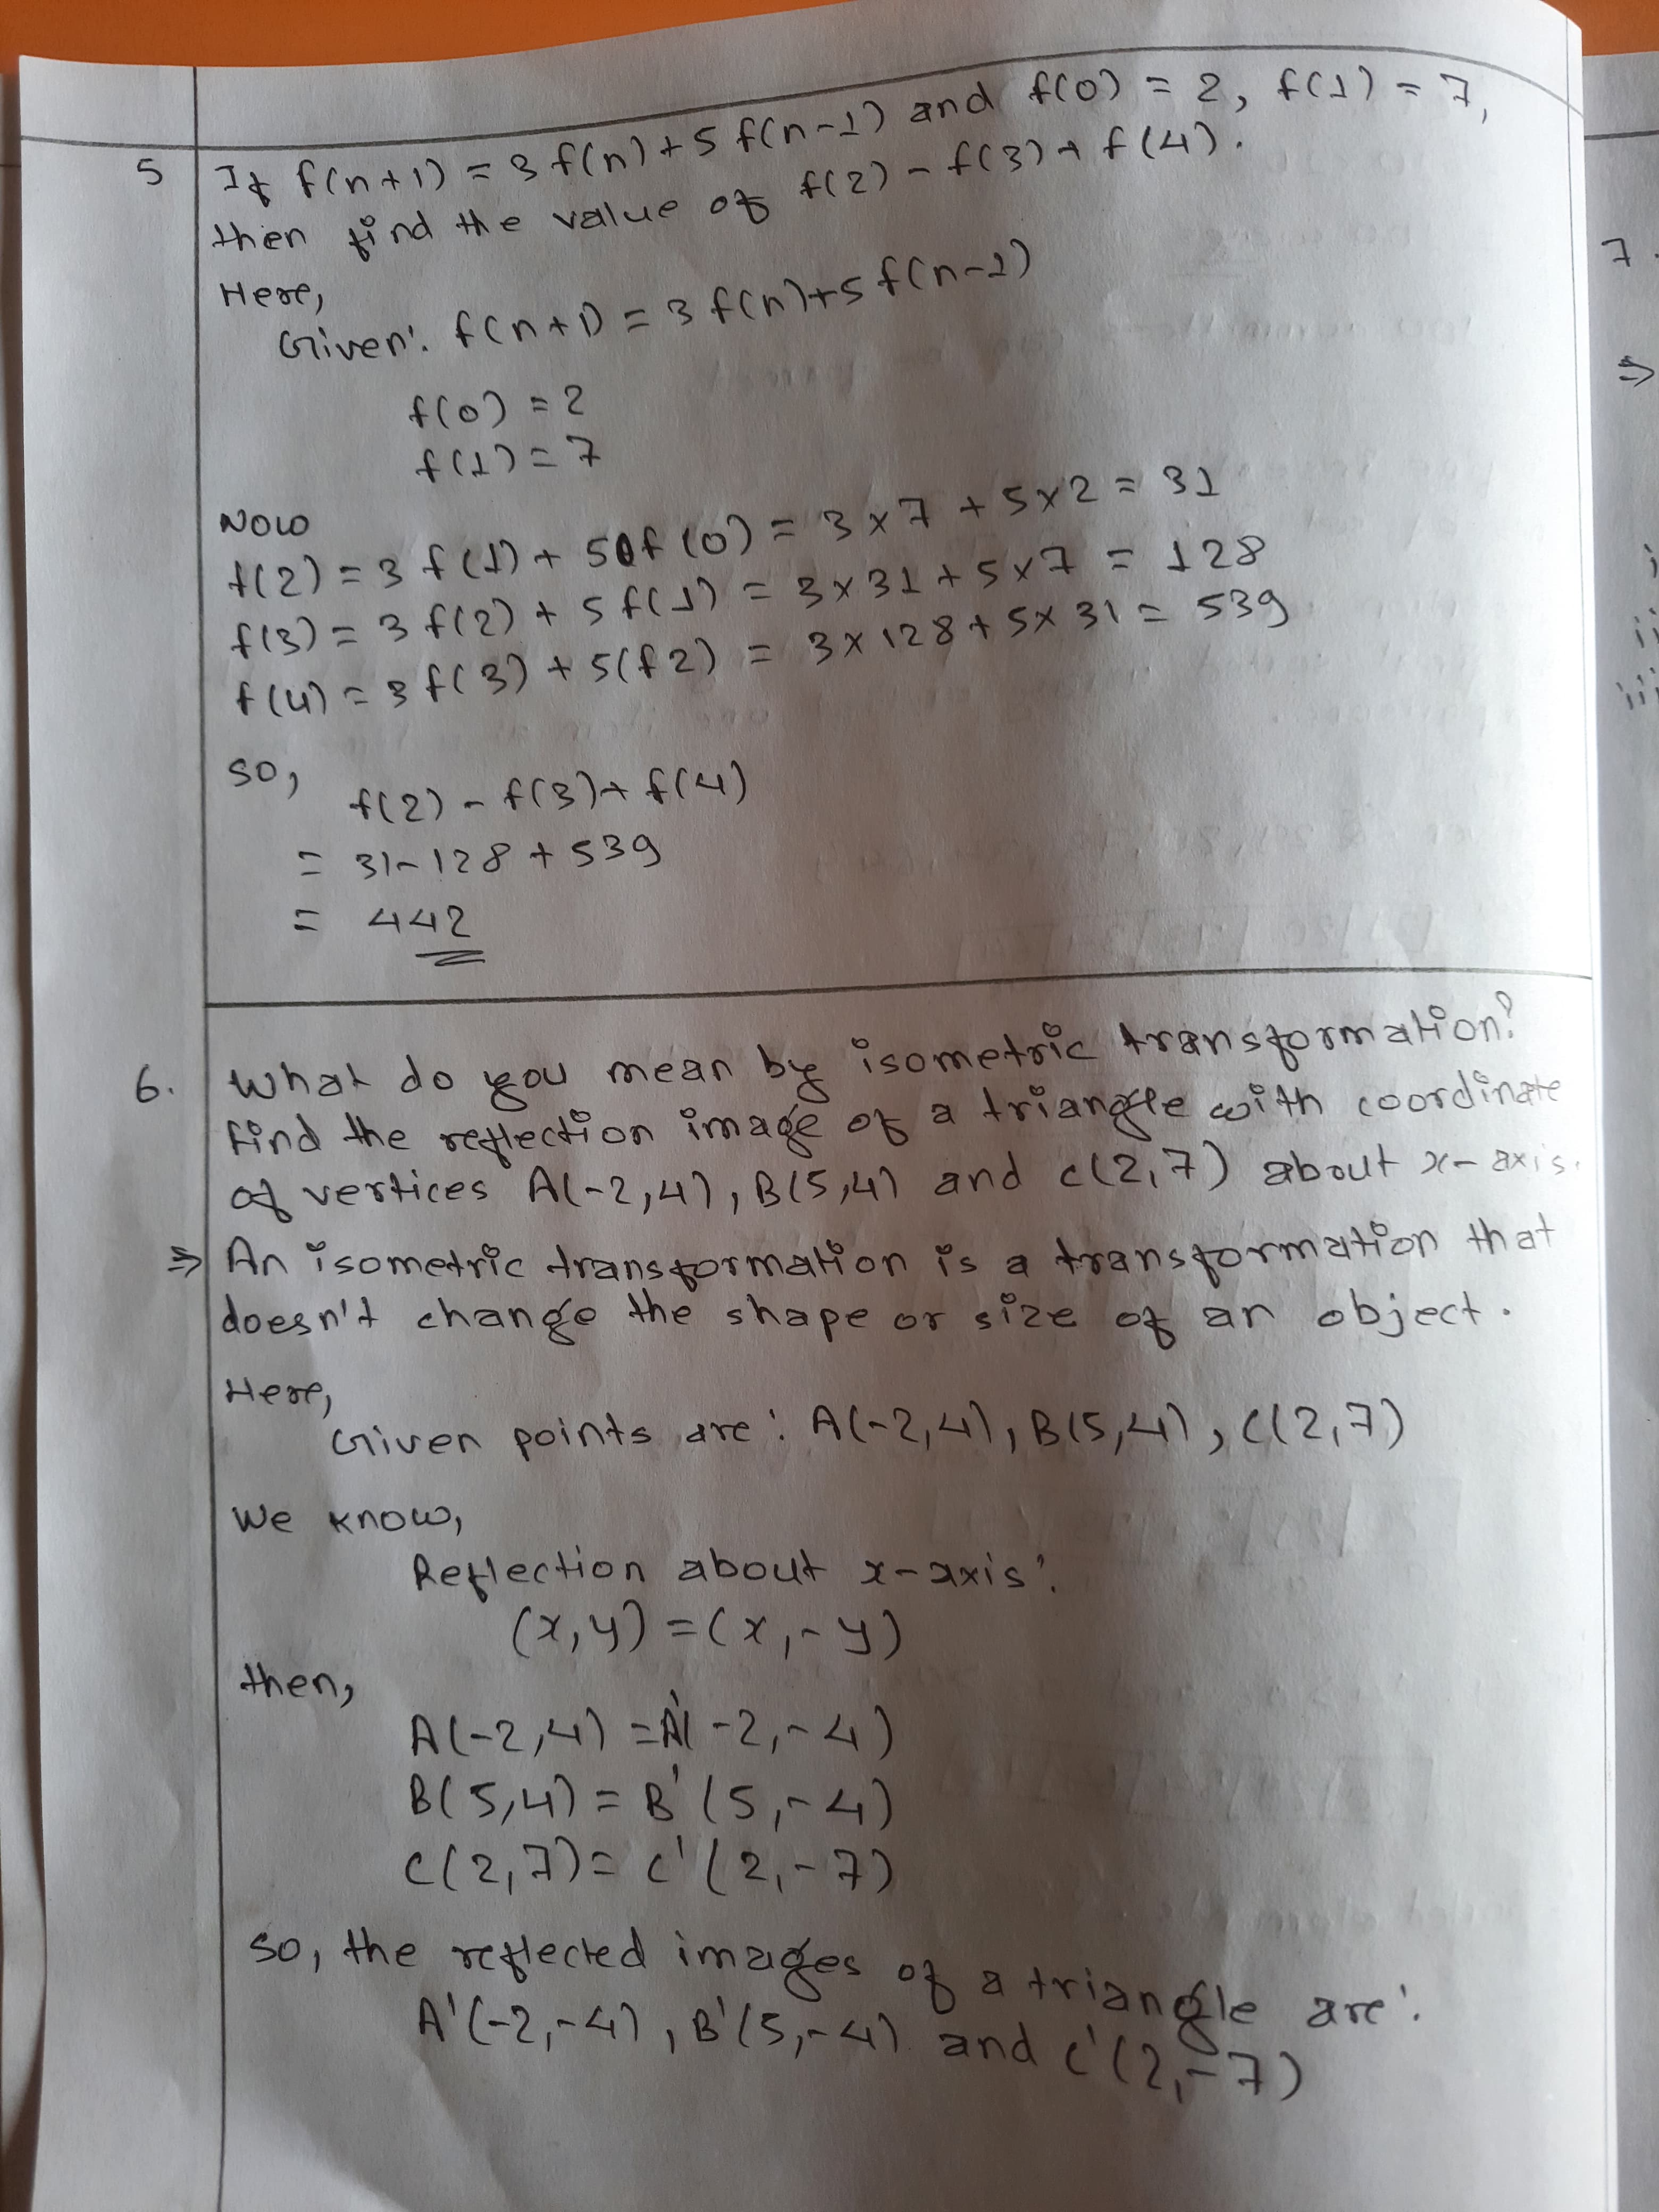 5 If f(n+1) = 3 f(n) + 5 f(n-1) and f(0) = 2, f(1) = 7,
then find the value of f(2) - f(3) + f(4).
Here,
Given: f(n+1) = 3 f(n) + 5 f(n-1)
f(0) = 2
f(1) = 7
Now
f(2) = 3 f(1) + 5 f(0) = 3 x 7 + 5 x 2 = 31
f(3) = 3 f(2) + 5 f(1) = 3 x 31 + 5 x 7 = 128
f(4) = 3 f(3) + 5(f2) = 3 x 128 + 5 x 31 = 539
so,
f(2) - f(3) + f(4)
= 31 - 128 + 539
= 442
6. What do you mean by isometric transformation?
Find the reflection image of a triangle with coordinate
of vertices A(-2,4), B(5,4) and C(2,7) about x-axis.
⇒ An isometric transformation is a transformation that
doesn't change the shape or size of an object.
Here,
Given points are: A(-2,4), B(5,4), C(2,7)
We know,
Reflection about x-axis:
(x,y) = (x,-y)
then,
A(-2,4) = A'(-2,-4)
B(5,4) = B'(5,-4)
C(2,7) = C'(2,-7)
So, the reflected images of a triangle are:
A'(-2,-4), B'(5,-4) and C'(2,-7)
7.
⇒
i
ii
iii